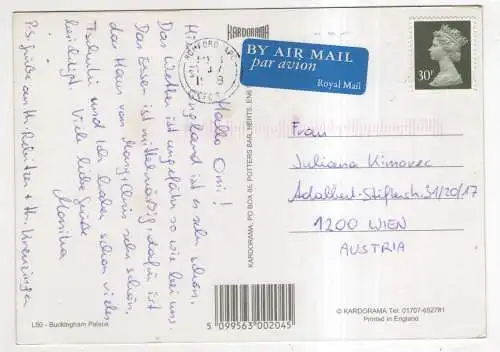 Hallo Omi!
Hier in England ist es sehr schön.
Das Wetter ist ungefähr so wie bei uns.
Das Essen ist mittelmäßig, dafür ist
das Haus von Margi sehr schön.
und ich haben schon vieles
besichtigt. Viele liebe Grüße
P.s.: Grüße an H.
KARDORAMA
BY AIR MAIL
par avion
Royal Mail
30P
KARDORAMA, PO BOX 85, POTTERS BAR, HERTS, EN6
Frau
Juliana Kimovec
Adalbert-Stifterstr. 31/20/17
1200 WIEN
AUSTRIA
L50 - Buckingham Palace
5 099563 002045
© KARDORAMA Tel: 01707-652781
Printed in England